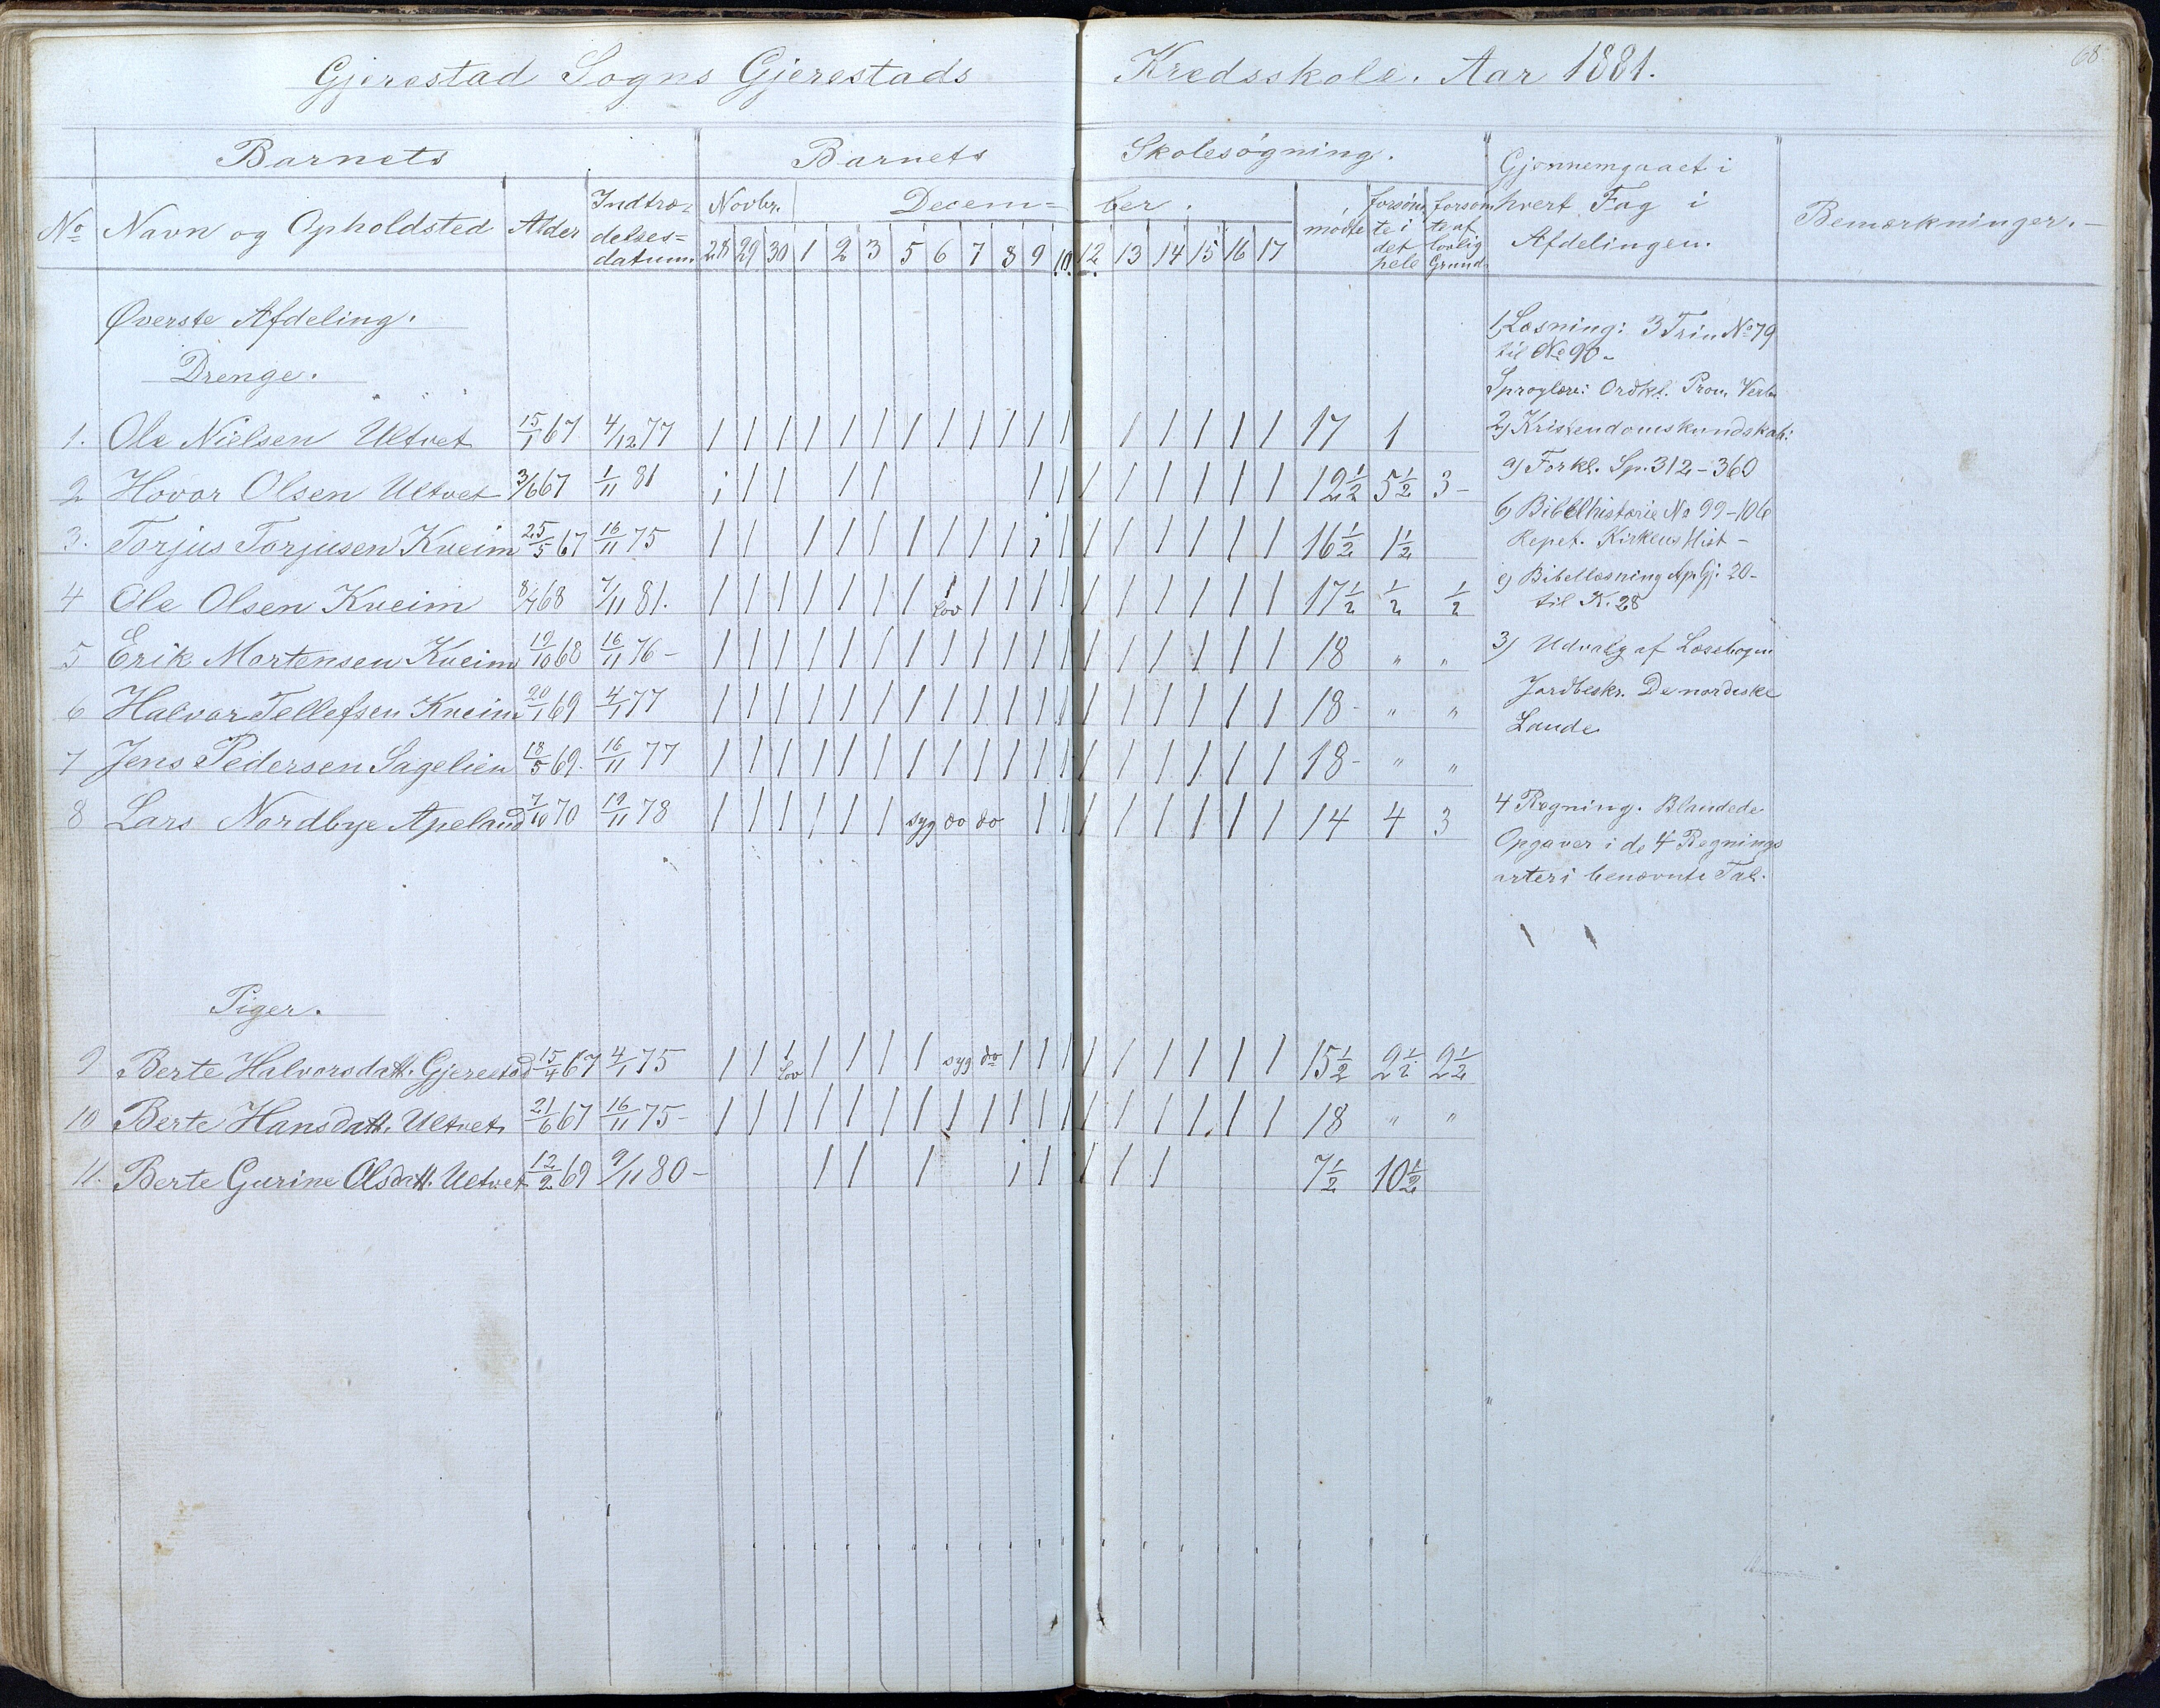 68
Gjerestad Sogns Gjerestads Kredsskole. Aar 1881.
Barnets Barnets Skolesøgning. Gjennemgaaet i hvert Fag i Afdelingen. Bemærkninger.
No Navn og Opholdsted Alder Indtræ-delses=datum. Novbr. Decem=ber. mødte forsømte i det hele forsømte af lovlig Grund.
28 29 30 1 2 3 5 6 7 8 9 10 12 13 14 15 16 17
Øverste Afdeling.
Drenge.
1. Ole Nielsen Ultvet 15/1 67 4/12 77 / / / / / / / / / / / / / / / / / 17 1
2 Hovor Olsen Ultvet 3/6 67 1/11 81 12 1/2 5 1/2 3 -
3. Torjus Torjusen Kveim 25/5 67 16/11 75 16 1/2 1 1/2
4 Ole Olsen Kveim 8/7 68 7/11 81. lov 17 1/2 1/2 1/2
5 Erik Mortensen Kveim 19/10 68 16/11 76 - 18 " "
6 Halvor Tellefsen Kveim 20/1 69 4/1 77 18 - " "
7 Jens Pedersen Sagelien 18/5 69. 16/11 77 18 - " "
8 Lars Nordbye Apeland 7/10 70 19/11 78 syg do do 14 4 3
Piger.
9 Berte Halvorsdatt. Gjerestad 15/4 67 4/1 75 lov syg do 15 1/2 2 1/2 2 1/2
10 Berte Hansdatt. Ultvet 21/6 67 16/11 75 - 18 " "
11. Berte Gurine Olsdatt. Ultvet 12/2 69 9/11 80 - 7 1/2 10 1/2
1, Læsning: 3 Trin No 79
til No 90 -
Sproglære: Ordkl. Pron. Verb
2) Kristendomskundskab:
a) Forkl. Sp. 312 - 360
b) Bibelhistorie No 99 - 106
Repet. Kirkens Hist -
c) Bibellæsning Ap. Gj. 20 -
til K. 28
3) Udvalg af Læsebogen
Jordbeskr. De nordiske
Lande
4 Regning. Blandede
Opgaver i de 4 Regnings
arter i benævnte Tal.